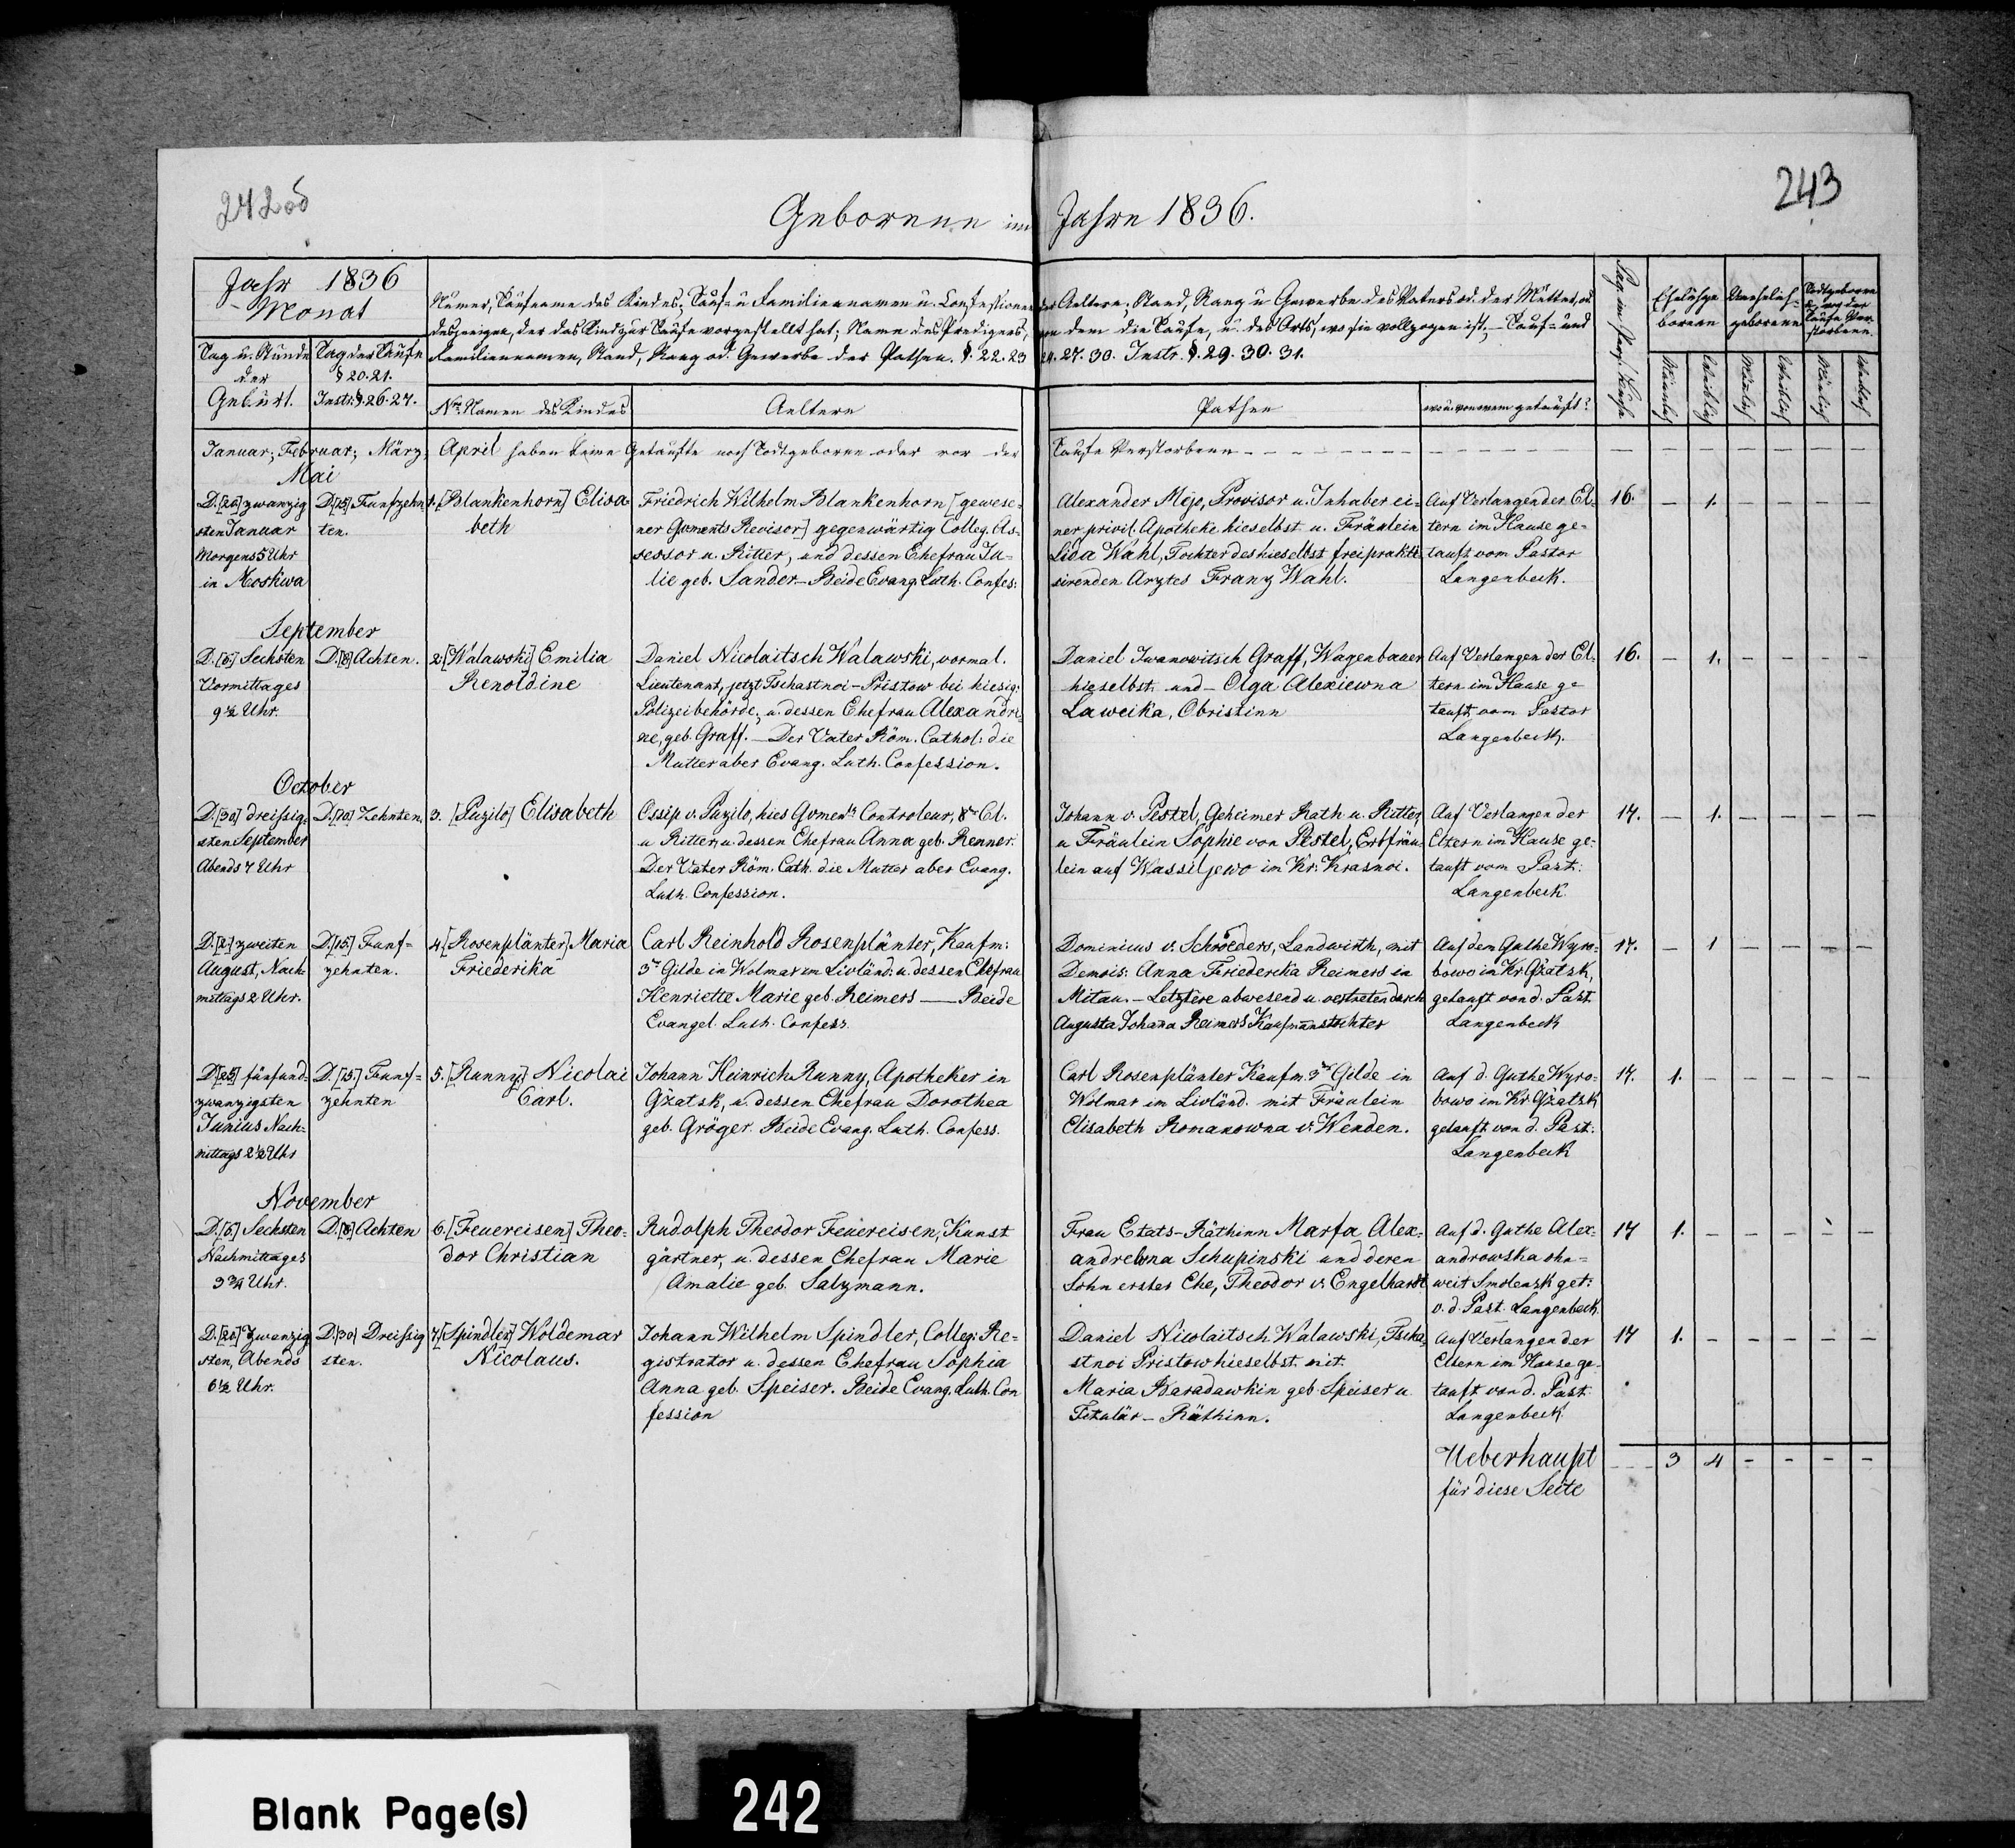 242 об
243
Geborene im Jahre 1836.
Jahr 1836
Monat
Tag u. Stunde
der
Geburt.
Tag der Taufe
§ 20. 21.
Instr: §. 26. 27.
Numer, Taufname des Kindes; Tauf- u Familiennamen u. Confessionen der Aeltern; Stand, Rang u Gewerbe des Vaters od. der Mutter, od
desjenigen, der das Kind zur Taufe vorgestellt hat; Name des Predigers, von dem die Taufe, u. des Orts, wo sie vollzogen ist, – Tauf- und
Familiennamen, Stand, Rang od. Gewerbe der Pathen. §. 22. 23 24. 27. 30. Instr. §. 29. 30. 31.
Nro. Namen des Kindes
Aeltern
Pathen
wo u. von wem getauft?
Pag. im Pers.
Eheliche
borenen
Unehelich-
geborene
Todtgeborene
u. vor der
Taufe Ver-
storbene
Männlich
Weiblich
Männlich
Weiblich
Männlich
Weiblich
Januar; Februar; März; April haben keine Getaufte noch Todtgeborene oder vor der Taufe Verstorbene – – – – – – – – – –
Mai
D. [20] zwanzig
sten Januar
Morgens 5 Uhr
in Moskwa
D. [15] Funfzehn
ten.
1. [Blankenhorn] Elisa
beth
Friedrich Wilhelm Blankenhorn [gewese-
ner Gvments Revisor] gegenwärtig Colleg. As-
sessor u. Ritter, und dessen Ehefrau Ju-
lie geb. Sander – Beide Evang. Luth. Confes:
Alexander Meje, Provisor u. Inhaber ei-
ner privil. Apotheke hieselbst u. Fräulein
Lida Wahl, Tochter des hieselbst frei prakti-
sirenden Arztes Franz Wahl.
Auf Verlangen der El-
tern im Hause ge-
tauft vom Pastor
Langenbeck.
16. – 1. – – – –
September
D. [6] Sechsten
Vormittages
9 ½ Uhr.
D. [8] Achten.
2. [Walawski] Emilia
Renoldine
Daniel Nicolaitsch Walawski, vormal.
Lieutenant, jetzt Tschastnoi-Pristow bei hiesig:
Polizeibehörde, u. dessen Ehefrau Alexandri
ne, geb. Graff. – Der Vater Röm. Cathol: die
Mutter aber Evang. Luth. Confession.
Daniel Iwanowitsch Graff, Wagenbauer
hieselbst und – Olga Alexiewna
Laweika, Obristinn
Auf Verlangen der El-
tern im Hause ge
tauft vom Pastor
Langenbeck.
16. – 1. – – – –
October
D. [30] dreissig-
sten September
Abends 7 Uhr
D. [10] Zehnten.
3. [Puzilo] Elisabeth
Ossip v. Puzilo, hies Gvments Controleur, 8r Cl.
u Ritter, u. dessen Ehefrau Anna geb. Renner.
Der Vater Röm. Cath. die Mutter aber Evang.
Luth. Confession.
Johann v. Pestel, Geheimer Rath u. Ritter,
u Fräulein Sophie von Pestel, Erbfräu-
lein auf Wassiljewo im Kr. Krasnoi.
Auf Verlangen der
Eltern im Hause ge-
tauft vom Past:
Langenbeck
17. – 1. – – – –
D. [2] zweiten
August, Nach-
mittags 2 Uhr.
D. [15] Funf-
zehnten.
4. [Rosenplänter] Maria
Friederika
Carl Reinhold Rosenplänter, Kaufm:
3r Gilde in Wolmar im Livländ: u. dessen Ehefrau
Henriette Marie geb. Reimers – Beide
Evangel. Luth. Confess.
Dominicus v. Schroeders, Landwirth, mit
Demois: Anna Friederika Reimers in
Mitau. – Letztere abwesend u. vertreten durch
Augusta Johana Reimers Kaufmannstochter
Auf dem Guthe Wyro-
bowo im Kr Gžatsk,
getauft von d. Past.
Langenbeck
17. – 1 – – – –
D. [25] fünfund-
zwanzigsten
Junius Nach-
mittags 2 ½ Uhr
D. [15.] Funf-
zehnten
5. [Runny] Nicolai
Carl.
Johann Heinrich Runny, Apotheker in
Gžatsk, u. dessen Ehefrau Dorothea
geb. Gröger. Beide Evang. Luth. Confess.
Carl Rosenplänter Kaufm. 3r Gilde in
Wolmar im Livländ. mit Fräulein
Elisabeth Romanowna v. Wenden.
Auf d. Guthe Wyro-
bowo im Kr Gžatsk
getauft von d. Past.
Langenbeck
17. 1. – – – – –
November
D. [6.] Sechsten
Nachmittages
3 ¾ Uhr.
D. [8] Achten
6. [Feuereisen] Theo-
dor Christian
Rudolph Theodor Feuereisen, Kunst
gärtner, u. dessen Ehefrau Marie
Amalie geb. Salzmann.
Frau Etats-Räthinn Marfa Alex-
andrewna Schupinski und deren
Sohn erster Ehe, Theodor v. Engelhardt
Auf d. Guthe Alex-
androwska ohn-
weit Smolensk get:
v. d. Past. Langenbeck.
17 1. – – – – –
D. [20] Zwanzig
sten, Abends
6 ½ Uhr.
D. [30] Dreissig
sten.
7. [Spindler] Woldemar
Nicolaus.
Johann Wilhelm Spindler, Colleg: Re-
gistrator u. dessen Ehefrau Sophia
Anna geb. Speiser. Beide Evang. Luth. Con
fession
Daniel Nicolaitsch Walawski, Tscha
stnoi Pristow hieselbst mit
Maria Baradawkin geb. Speiser u
Titulär-Räthinn.
Auf Verlangen der
Eltern im Hause ge-
tauft von d. Past.
Langenbeck.
17 1. – – – – –
Ueberhaupt
für diese Seite
3 4 – – – –
Blank Page(s)
242